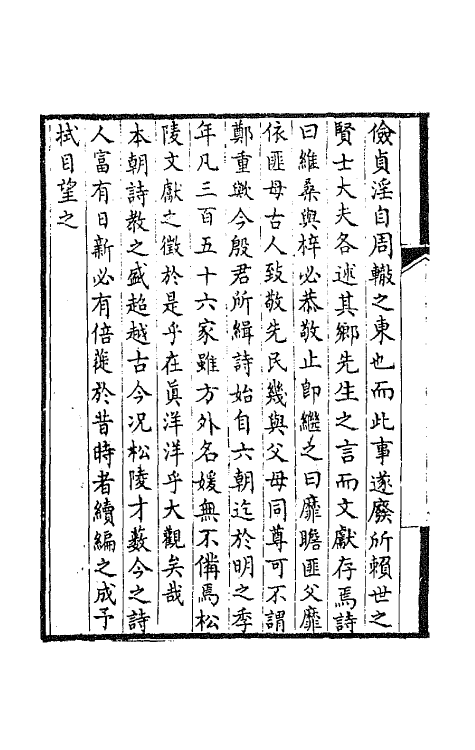 儉貞淫自周轍之東也而此事遂廢所賴世之
賢士大夫各述其鄉先生之言而文獻存焉詩
曰維桑與梓必恭敬止卽繼之曰靡瞻匪父靡
依匪母古人致敬先民幾與父母同尊可不謂
鄭重歟今殷君所緝詩始自六朝迄於明之季
年凡三百五十六家雖方外名媛無不備焉松
陵文獻之徵於是乎在眞洋洋乎大觀矣哉
本朝詩敎之盛超越古今况松陵才藪今之詩
人富有日新必有倍蓰於昔時者續編之成予
拭目望之